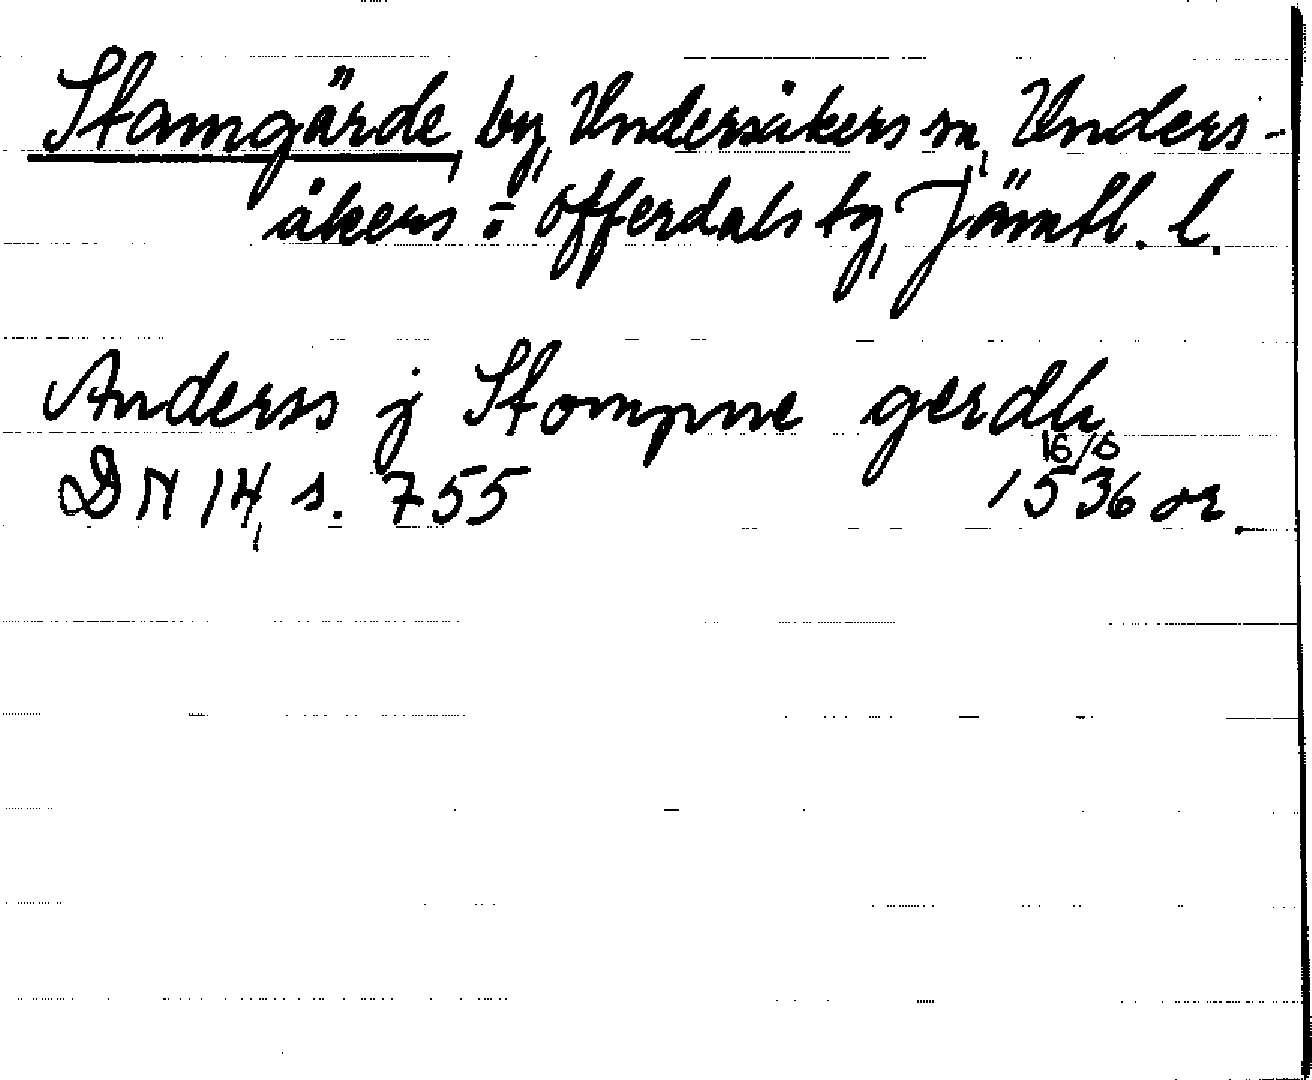 Stamgärde, by, Undersåkers sn, Unders-
åkers o. Offerdals tg, Jämtl. l.
Anderss j Stompne gerdh
16/6
DN 14, s. 755 1536 or.